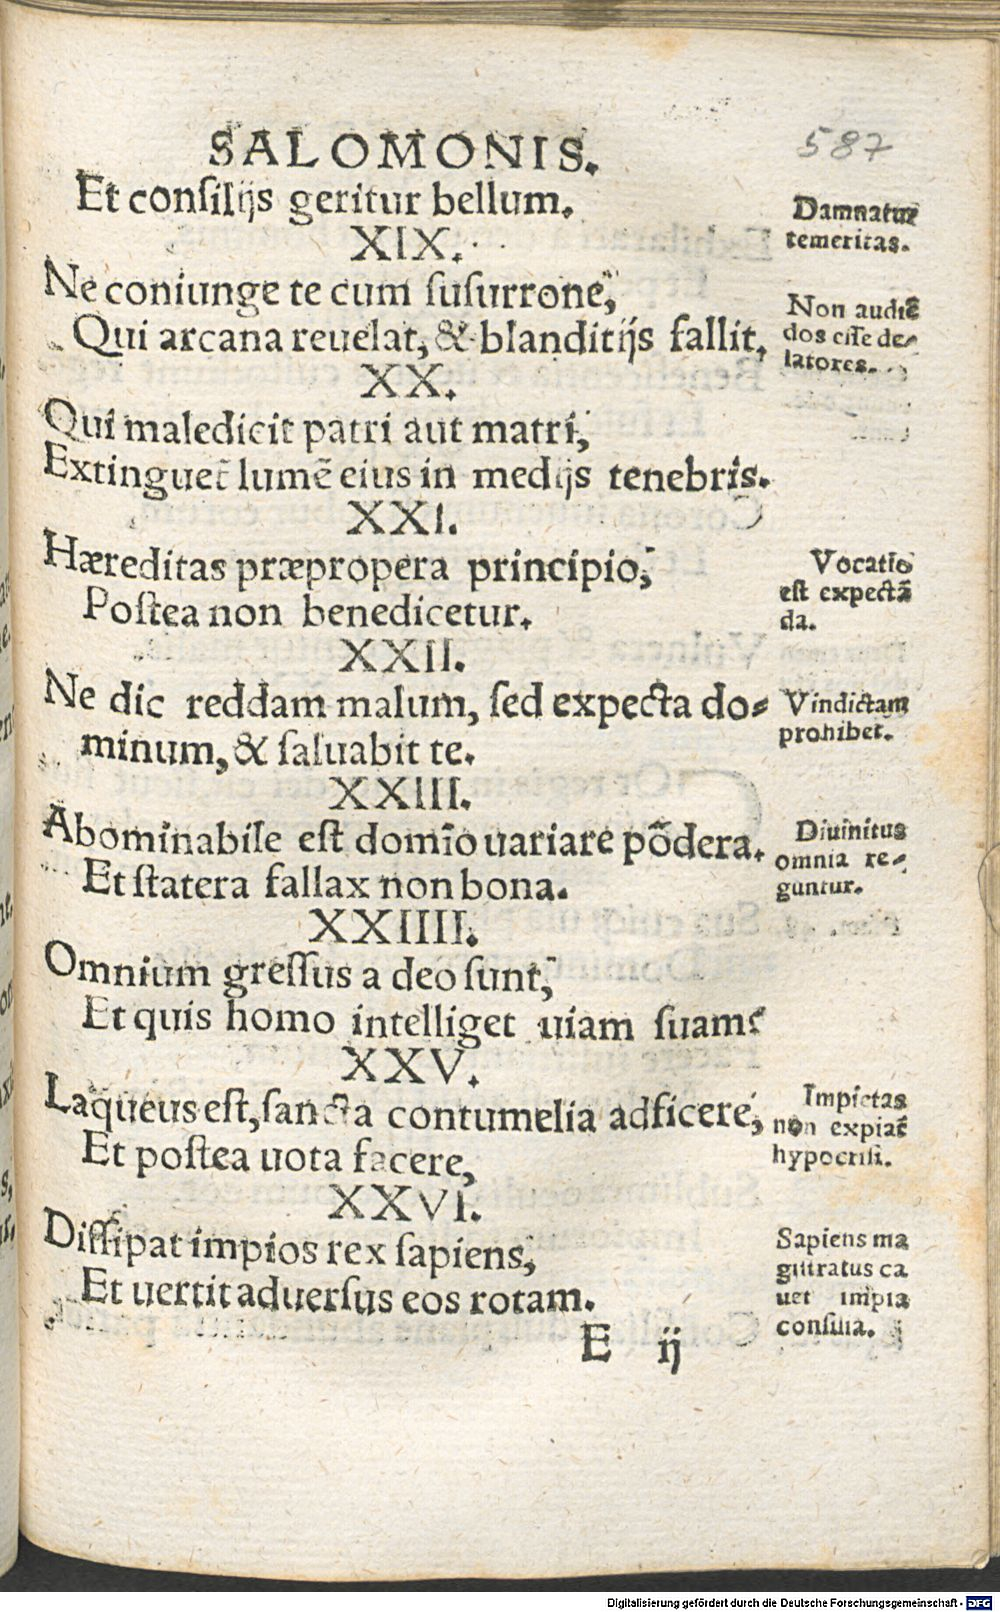 SALOMONIS.
587
Et consilijs geritur bellum.
Damnatur
temeritas.
XIX.
Ne coniunge te cum susurrone,
Qui arcana reuelat, & blanditijs fallit.
Non audiē
dos esse de-
latores.
XX.
Qui maledicit patri aut matri,
Extinguet̄ lumē eius in medijs tenebris.
XXI.
Hæreditas præpropera principio,
Postea non benedicetur.
Vocatio
est expectā
da.
XXII.
Ne dic reddam malum, sed expecta do-
minum, & saluabit te.
Vindictam
prohibet.
XXIII.
Abominabile est domīo uariare pōdera.
Et statera fallax non bona.
Diuinitus
omnia re-
guntur.
XXIIII.
Omnium gressus a deo sunt,
Et quis homo intelliget uiam suam?
XXV.
Laqueus est, sancta contumelia adficere,
Et postea uota facere,
Impietas
non expiat̄
hypocrisi.
XXVI.
Dissipat impios rex sapiens,
Et uertit aduersus eos rotam.
Sapiens ma
gistratus ca
uet impia
consilia.
E ij
Digitalisierung gefördert durch die Deutsche Forschungsgemeinschaft - DFG